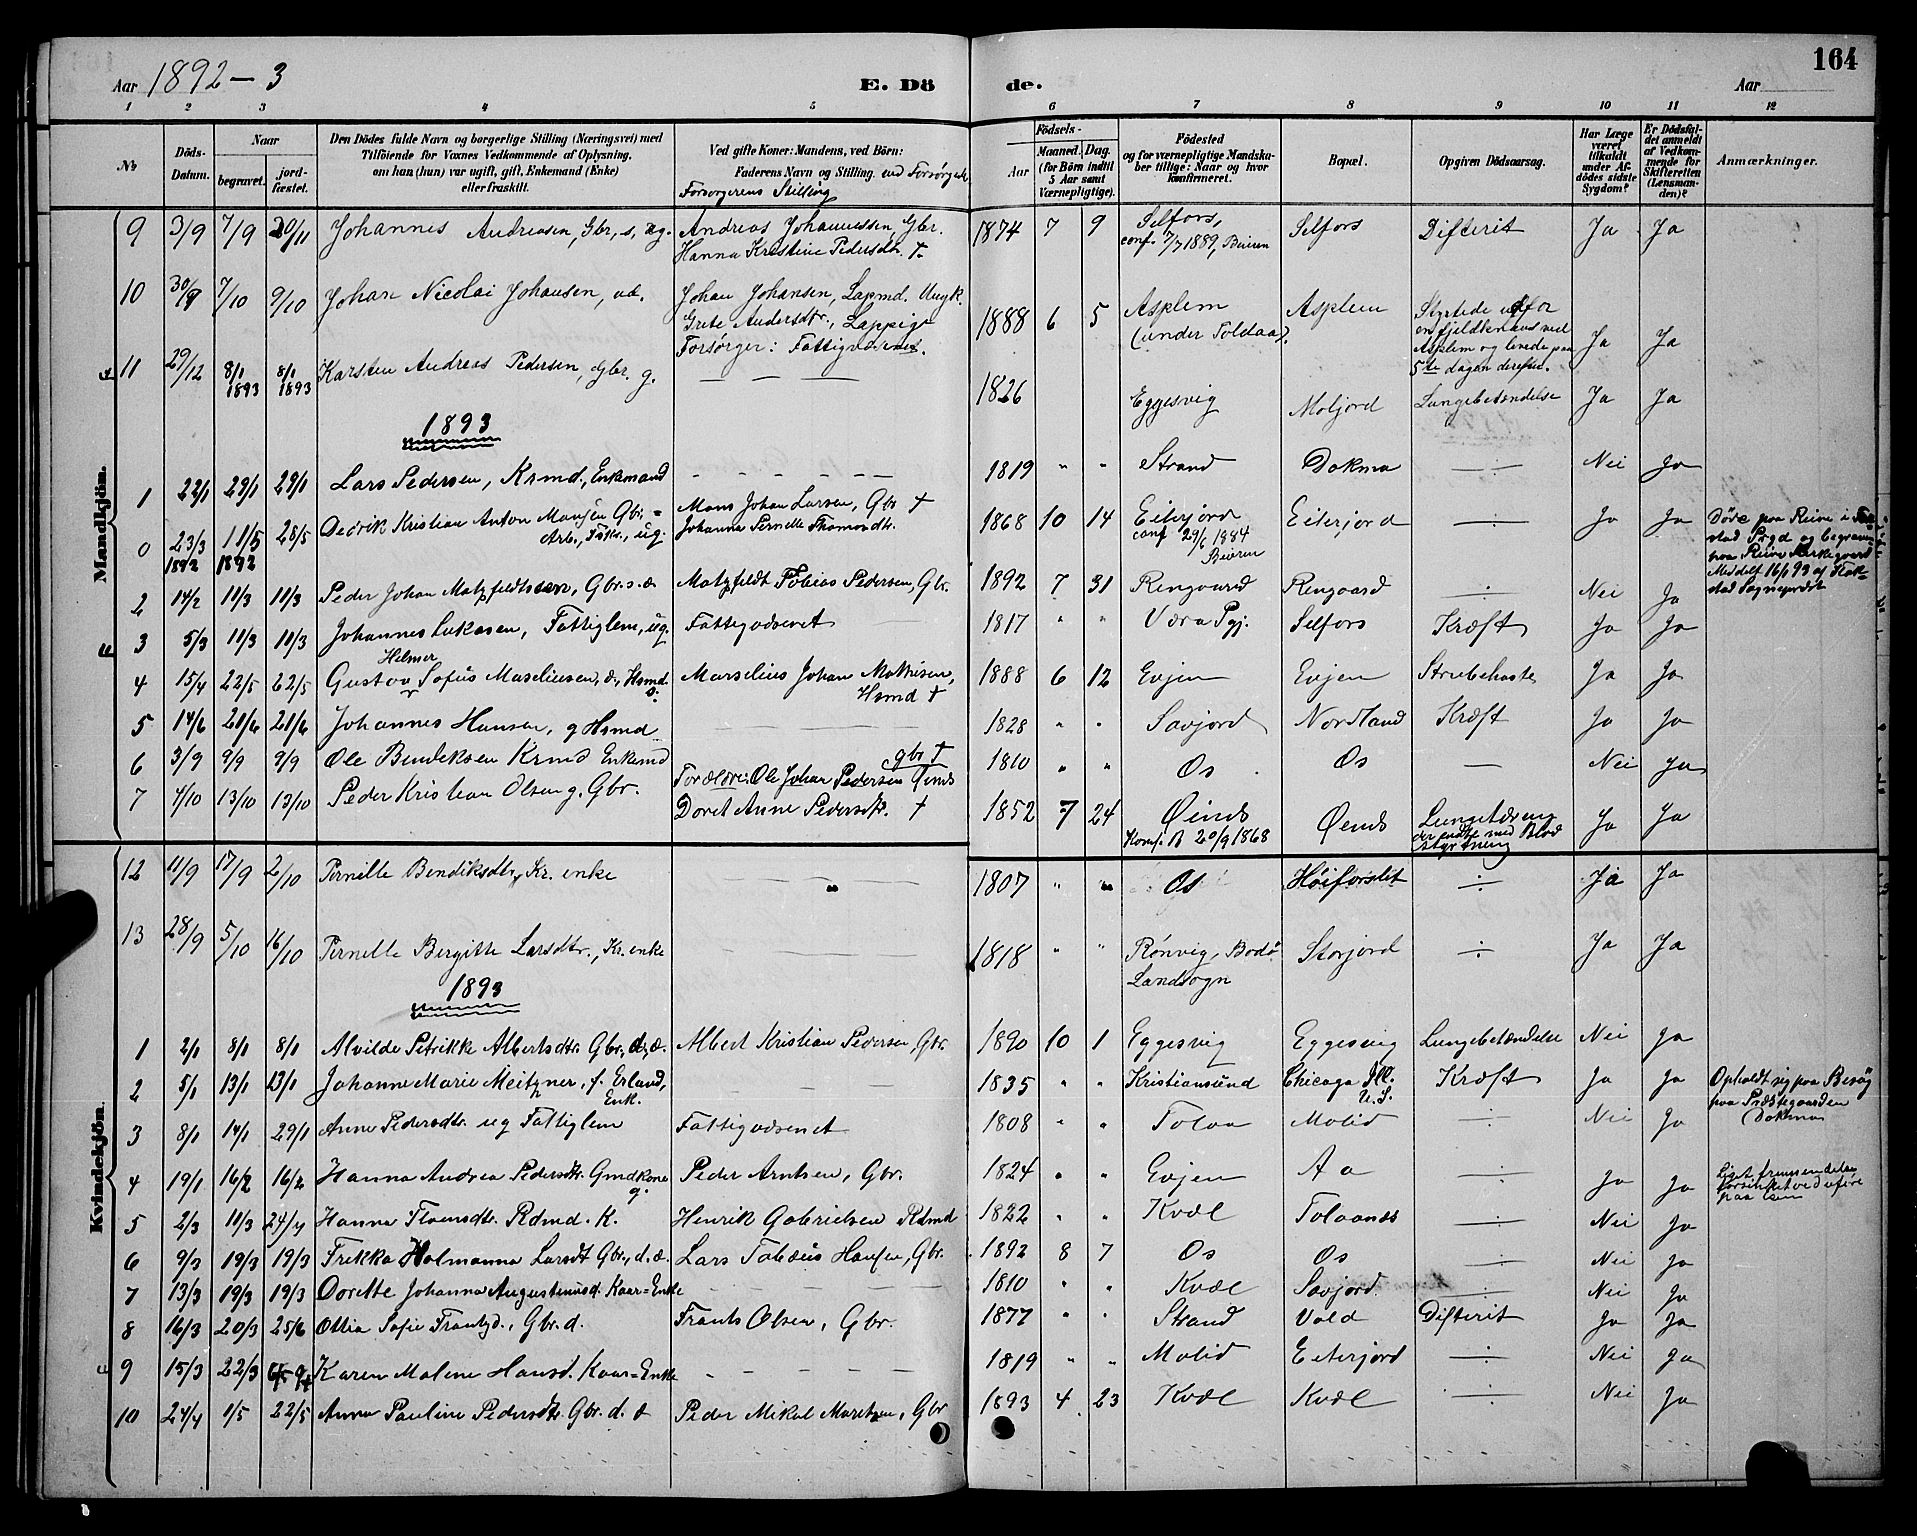 Aar 1892 – 3
E. Dö
de.
Aar
164
1 2 3 4 5 6 7 8 9 10 11 12
№
Döds-
Datum.
Naar
begravet.
jord-
fæstet.
Den Dödes fulde Navn og borgerlige Stilling (Næringsvei) med
Tilföiende for Voxnes Vedkommende af Oplysning,
om han (hun) var ugift, gift, Enkemand (Enke)
eller fraskilt.
Ved gifte Koner: Mandens, ved Börn:
Faderens Navn og Stilling. ved Forsörgede
Forsörgerens Stilling
Födsels-
Aar
Maaned. Dag.
(for Börn indtil
5 Aar samt
Værnepligtige).
Födested
og for værnepligtige Mandska-
ber tillige: Naar og hvor
konfirmeret.
Bopæl.
Opgiven Dödsaarsag.
Har Læge
været
tilkaldt
under Af-
dödes sidste
Sygdom?
Er Dödsfal-
det anmeldt
af Vedkom-
mende for
Skifteretten
(Lensman-
den)?
Anmærkninger.
Mandkjön.
9 3/9 7/9 20/11 Johannes Andreasen, Gbr, s, ug. Andreas Johannessen, Gbr. 1874 7 9 Selfors, Selfors Difterit Ja Ja
Hanna Kristine Pedersdtr. † conf. 7/7 1889, Beieren
10 30/9 7/10 9/10 Johan Nicolai Johansen, Johan Johansen, Lapmd. Ungk. 1888 6 5 Asplem Asplem Styrtede udfor
Grete Andersdtr., Lappige (under Toldaa). en fjeldknaus ved Ja Ja
Forsörger: Fattigvæsenet. Asplem og levede paa
5te dagen derefter.
11 29/12 8/1 1893 8/1 1893 Karsten Andreas Pedersen, Gbr. g. — — — 1826 Eggesvig Moljord Lungebetændelse Ja Ja
1893
1 22/1 29/1 29/1 Lars Pedersen, Ksmd., Enkemand - - - - - - 1819 " " Strand Dokmo ÷ Nei Ja
0 23/3 1892 11/5 1892 28/5 Dedrik Kristian Anton Monsen Gbr.= Mons Johan Larsen, Gbr † 1868 10 14 Eiterjord Eiterjord ÷ Ja Ja Döde paa Reine i
Arb., Fskr., ug. Johanna Pernille Thomasdtr. conf 29/6 1884 Beieren stad Pgd og begraven
paa Reine Kirkegaard
Meddelt 16/1 93 af
stad Sognepræst
2 14/2 11/3 11/3 Peder Johan Matzfeldtssen, Gbr. s. æ Matzfeldt Tobias Pedersen, Gbr. 1892 7 31 Ringaard Ringaard ÷ Nei Ja
3 5/3 11/3 11/3 Johannes Lukasen, Fattiglem, ug. Fattigvæsenet 1817 " " Værø Pgj. Selfors Kræft Ja Ja
Helmer
4 15/4 22/5 22/5 Gustav Sofus Maseliusen, æ, Hsmd. s. Marselius Johan Mathisen, Hsmd † 1888 6 12 Evjen Evjen Strubehoste Ja Ja
5 14/6 21/6 21/6 Johannes Hansen, g Hsmd — — — 1828 " " Savjord Nordland Kræft Ja Ja
6 3/9 9/9 9/9 Ole Bendiksen Krmd Enkemd gbr † 1810 " " Os Os — Nei Ja
7 4/10 13/10 13/10 Peder Kristian Olsen g. Gbr. Forældre: Ole Johan Pedersen Öines 1852 7 24 Öines Öines Lungetæring Ja Ja
Doret Anne Pedersdtr. † Konf. B 20/9 1868 der endte med Blod
styrtning
Kvindekjön.
12 11/9 17/9 2/10 Pernille Bendiksdtr, Kr. enke — " — 1807 " " Os Höiforslit ÷ Ja Ja
13 28/9 5/10 16/10 Pernille Bergitte Larsdtr., Kr. enke — — — 1818 " " Rönvig, Bodö Storjord ÷ Ja Ja
Landsogn
1893
1 2/1 8/1 8/1 Alvilde Petrikke Albertsdtr. Gbr, d, æ. Albert Kristian Pedersen, Gbr. 1890 10 1 Eggesvig Eggesvig Lungebetændelse Nei Ja
2 5/1 13/1 13/1 Johanne Marie Meitzner, f. Erland, Enk. — — 1835 " " Kristiansund Chicago Ill. U.S. Kræft Ja Ja Opholdt sig paa Besög
paa Præstegaarden
Dokmo
3 8/1 14/1 29/1 Anne Pedersdtr. ug Fattiglem Fattigvæsenet 1808 " " Tolaa Molid ÷ Nei Ja
4 19/1 16/2 16/2 Hanna Andrea Pedersdtr. Gmdkone g. Peder Arntsen, Gbr. 1824 " " Evjen Aa ÷ Ja Ja
5 2/3 11/3 24/4 Hanna Floensdtr. Rdmd. K. Henrik Gabrielsen Rdmd 1822 " " Kvæl Tolaanes ÷ Nei Ja
6 9/3 19/3 19/3 Frikka Holmanna Larsdt Gbr., d. æ. Lars Tobæus Hansen, Gbr. 1892 8 7 Os Os ÷ Nei Ja
7 13/3 19/3 19/3 Dorette Johanna Augustinusd. Kaar=Enke — — — 1810 " " Kvæl Savjord ÷ Nei Ja
8 16/3 20/3 25/6 Ottia Sofie Frantzd., Gbr. d. Frants Olsen, Gbr. 1877 " " Strand Vold Difterit Ja Ja
9 15/3 22/3 Karen Malene Hansd. Kaar=Enke - - - - - 1819 " " Molid Eiterjord ÷ Nei Ja
10 24/4 1/5 22/5 Anna Pauline Pedersdtr. Gbr. d. æ Peder Mikal Moritzen, Gbr 1893 4 23 Kvæl Kvæl ÷ Nei Ja